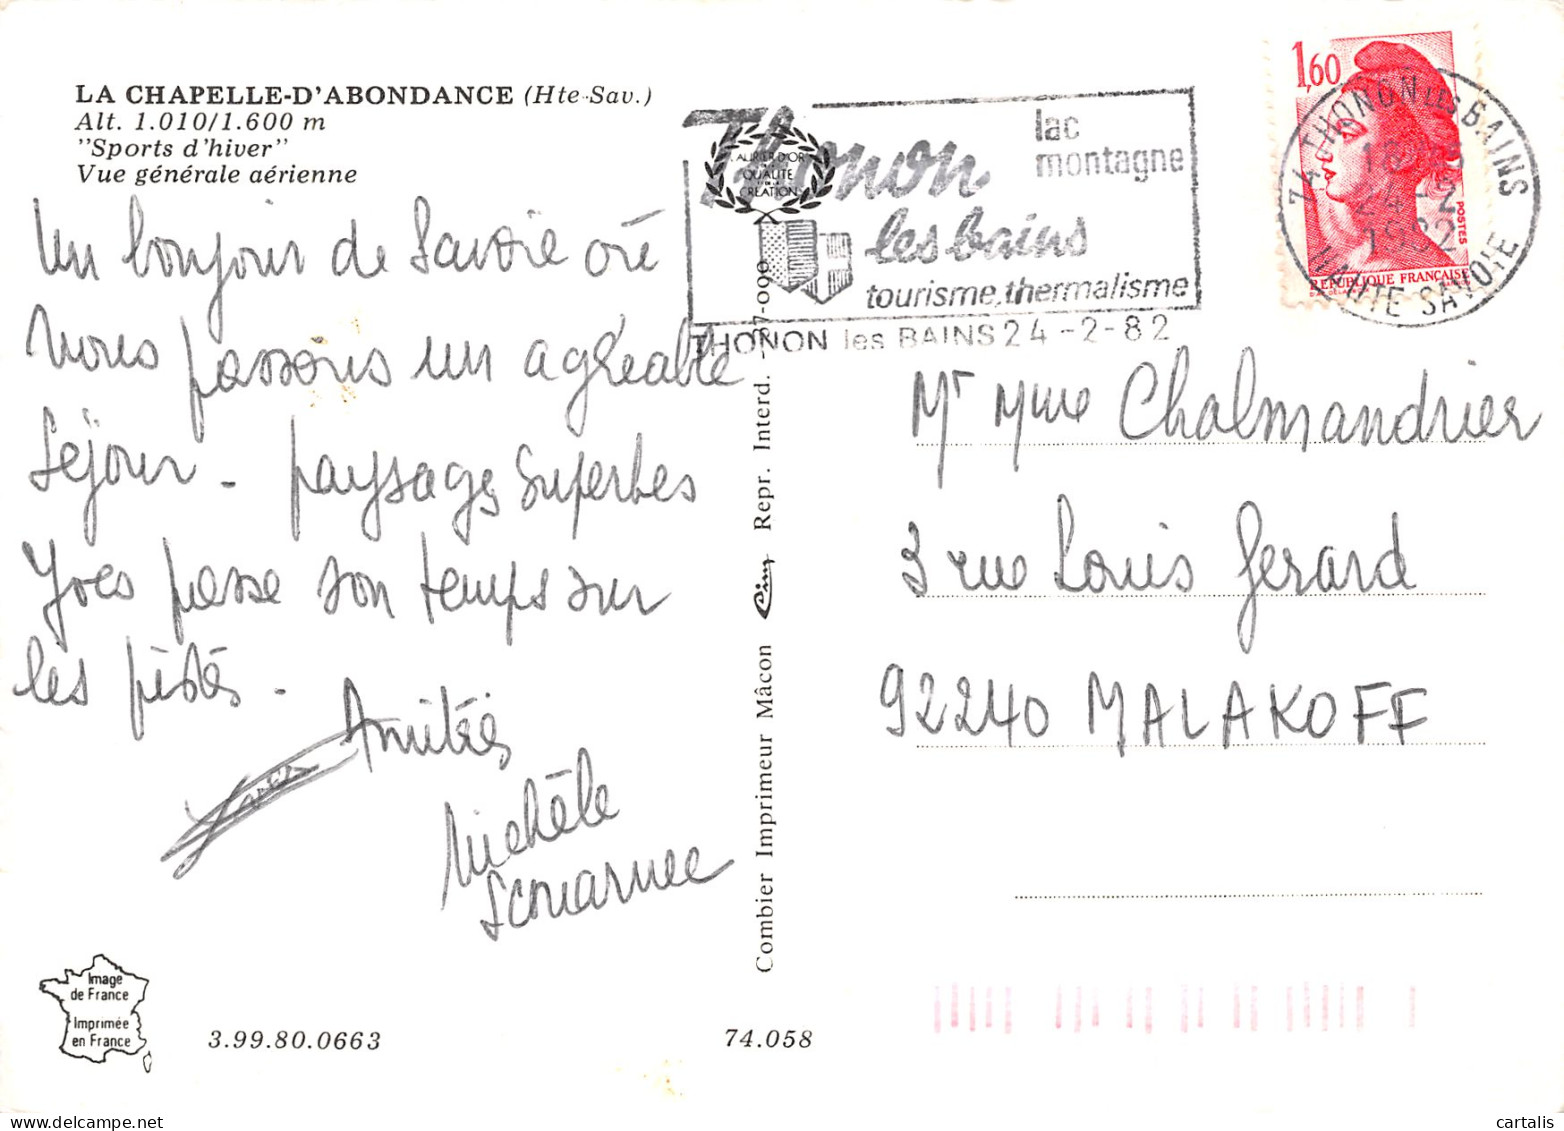 LA CHAPELLE-D'ABONDANCE (Hte-Sav.)
Alt. 1.010/1.600 m
"Sports d'hiver"
Vue générale aérienne
Un bonjour de Savoie où
nous passons un agréable
séjour - paysages superbes
Yves passe son temps sur
les pistes.
Amitiés
Michèle
Thonon
les bains
lac
montagne
tourisme, thermalisme
THONON les BAINS 24-2-82
LAURIER D'OR
QUALITÉ
CRÉATION
1,60
POSTES
REPUBLIQUE FRANÇAISE
74 THONON LES BAINS
18
24-2
1982
HAUTE-SAVOIE
Mr Mme Chalmandrier
3 rue Louis Gerard
92240 MALAKOFF
Combier Imprimeur Mâcon Cim Repr. Interd.
Image
de France
Imprimée
en France
3.99.80.0663
74.058
cartalis